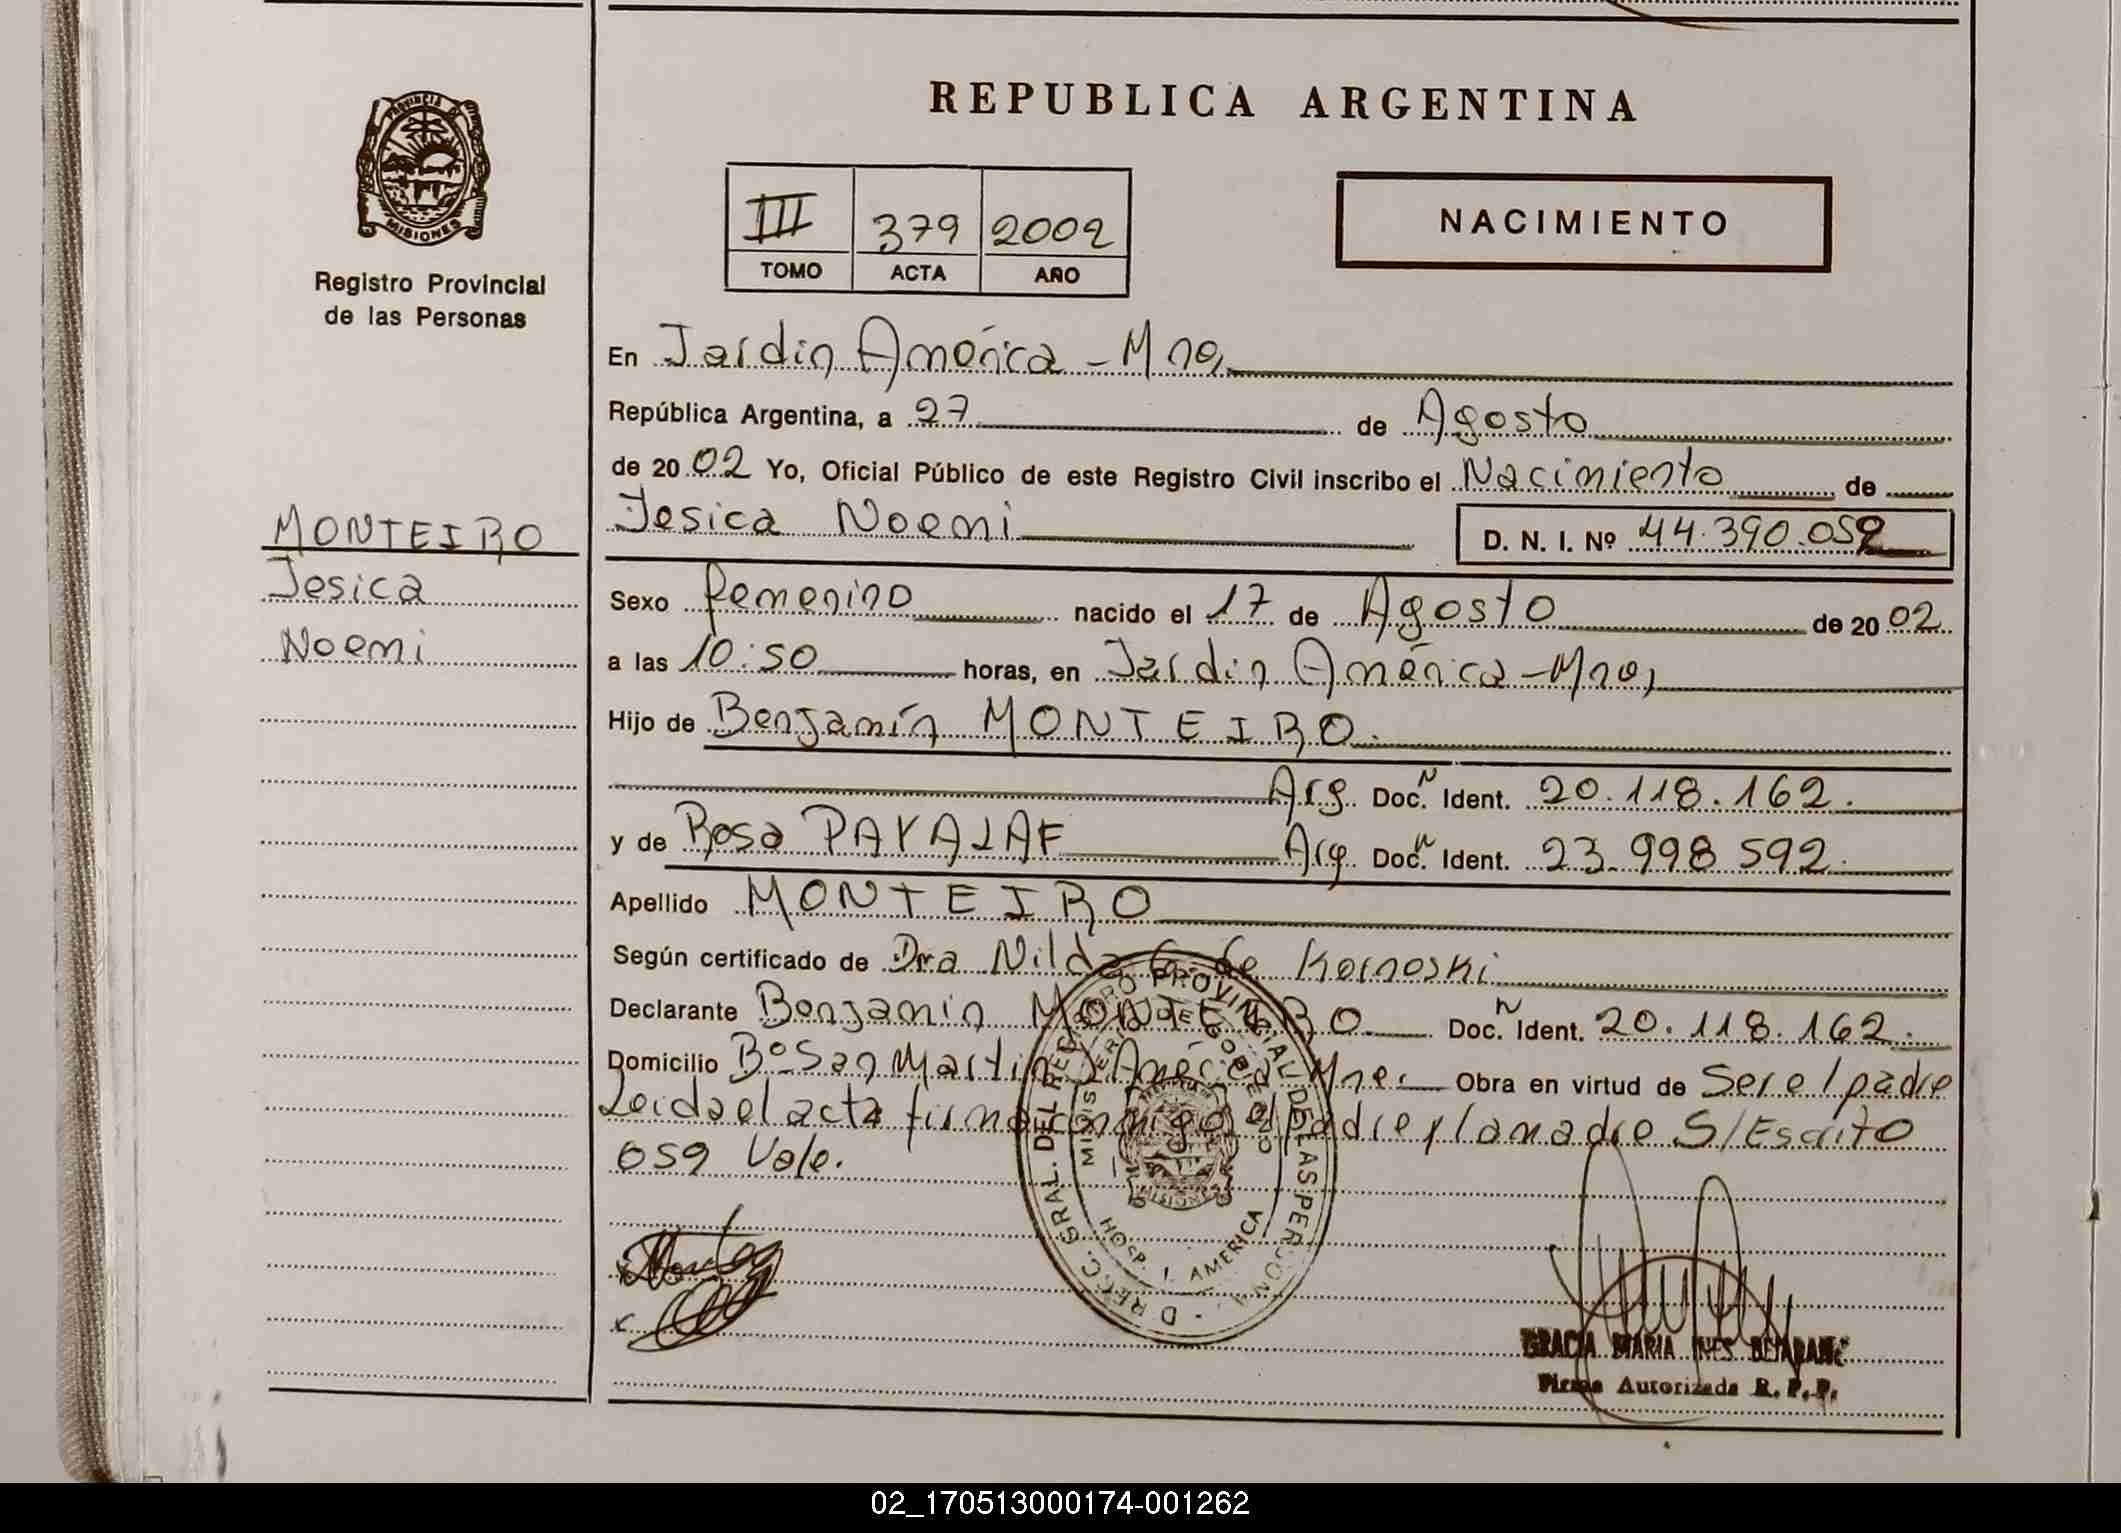 PROVINCIA DE
MISIONES
Registro Provincial
de las Personas
MONTEIRO
Jesica
Noemi
REPUBLICA ARGENTINA
III 379 2002
TOMO ACTA AÑO
NACIMIENTO
En Jardín América - Mnes,
República Argentina, a 27 de Agosto
de 2002 Yo, Oficial Público de este Registro Civil inscribo el Nacimiento de
Jesica Noemi D. N. I. Nº 44.390.059
Sexo femenino nacido el 17 de Agosto de 2002
a las 10:50 horas, en Jardín América - Mnes,
Hijo de Benjamín MONTEIRO.
Arg. Doc. N Ident. 20.118.162.
y de Rosa Arg. Doc. N Ident. 23.998.592.
Apellido MONTEIRO
Según certificado de Dra Nilda de Kornoski
Declarante Benjamin MONTEIRO Doc. N Ident. 20.118.162.
Domicilio Bº San Martin J América Mnes. Obra en virtud de Ser el padre
Leida el acta firma conmigo el padre y la madre S/Escrito
059 Vale.
DIRECC. GRAL. DEL REGISTRO PROVINCIAL DE LAS PERSONAS
MINISTERIO DE GOBIERNO
HOSP. J. AMERICA
MISIONES
GRACIA MARIA INES
Firma Autorizada R. P. P.
02_170513000174-001262